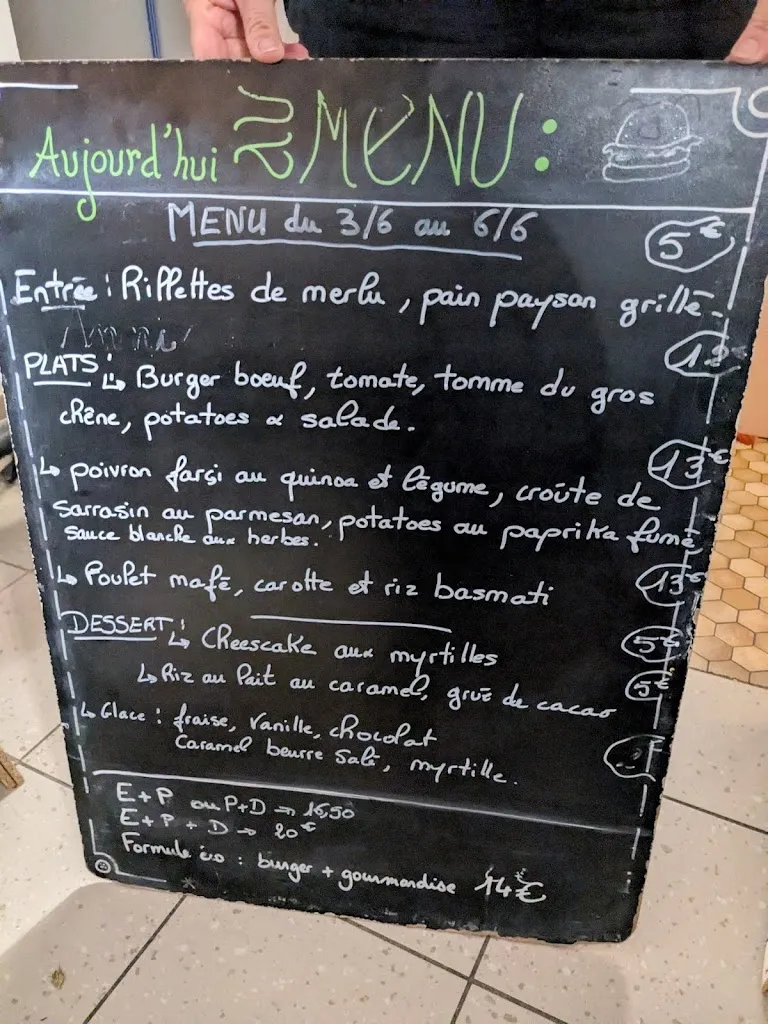 Aujourd'hui MENU :
MENU du 3/6 au 6/6
5€
Entrée : Rillettes de merlu, pain paysan grillé
PLATS : ↳ Burger boeuf, tomate, tomme du gros
chêne, potatoes & salade.
13€
↳ poivron farçi au quinoa et légume, croûte de
sarrasin au parmesan, potatoes au paprika fumé
sauce blanche aux herbes.
↳ Poulet mafé, carotte et riz basmati 13€
DESSERT : ↳ Cheescake aux myrtilles 5€
↳ Riz au lait au caramel, grué de cacao 5€
↳ Glace : fraise, vanille, chocolat
Caramel beurre salé, myrtille.
E+P ou P+D → 16,50
E+P+D → 20€
Formule éco : burger + gourmandise 14€